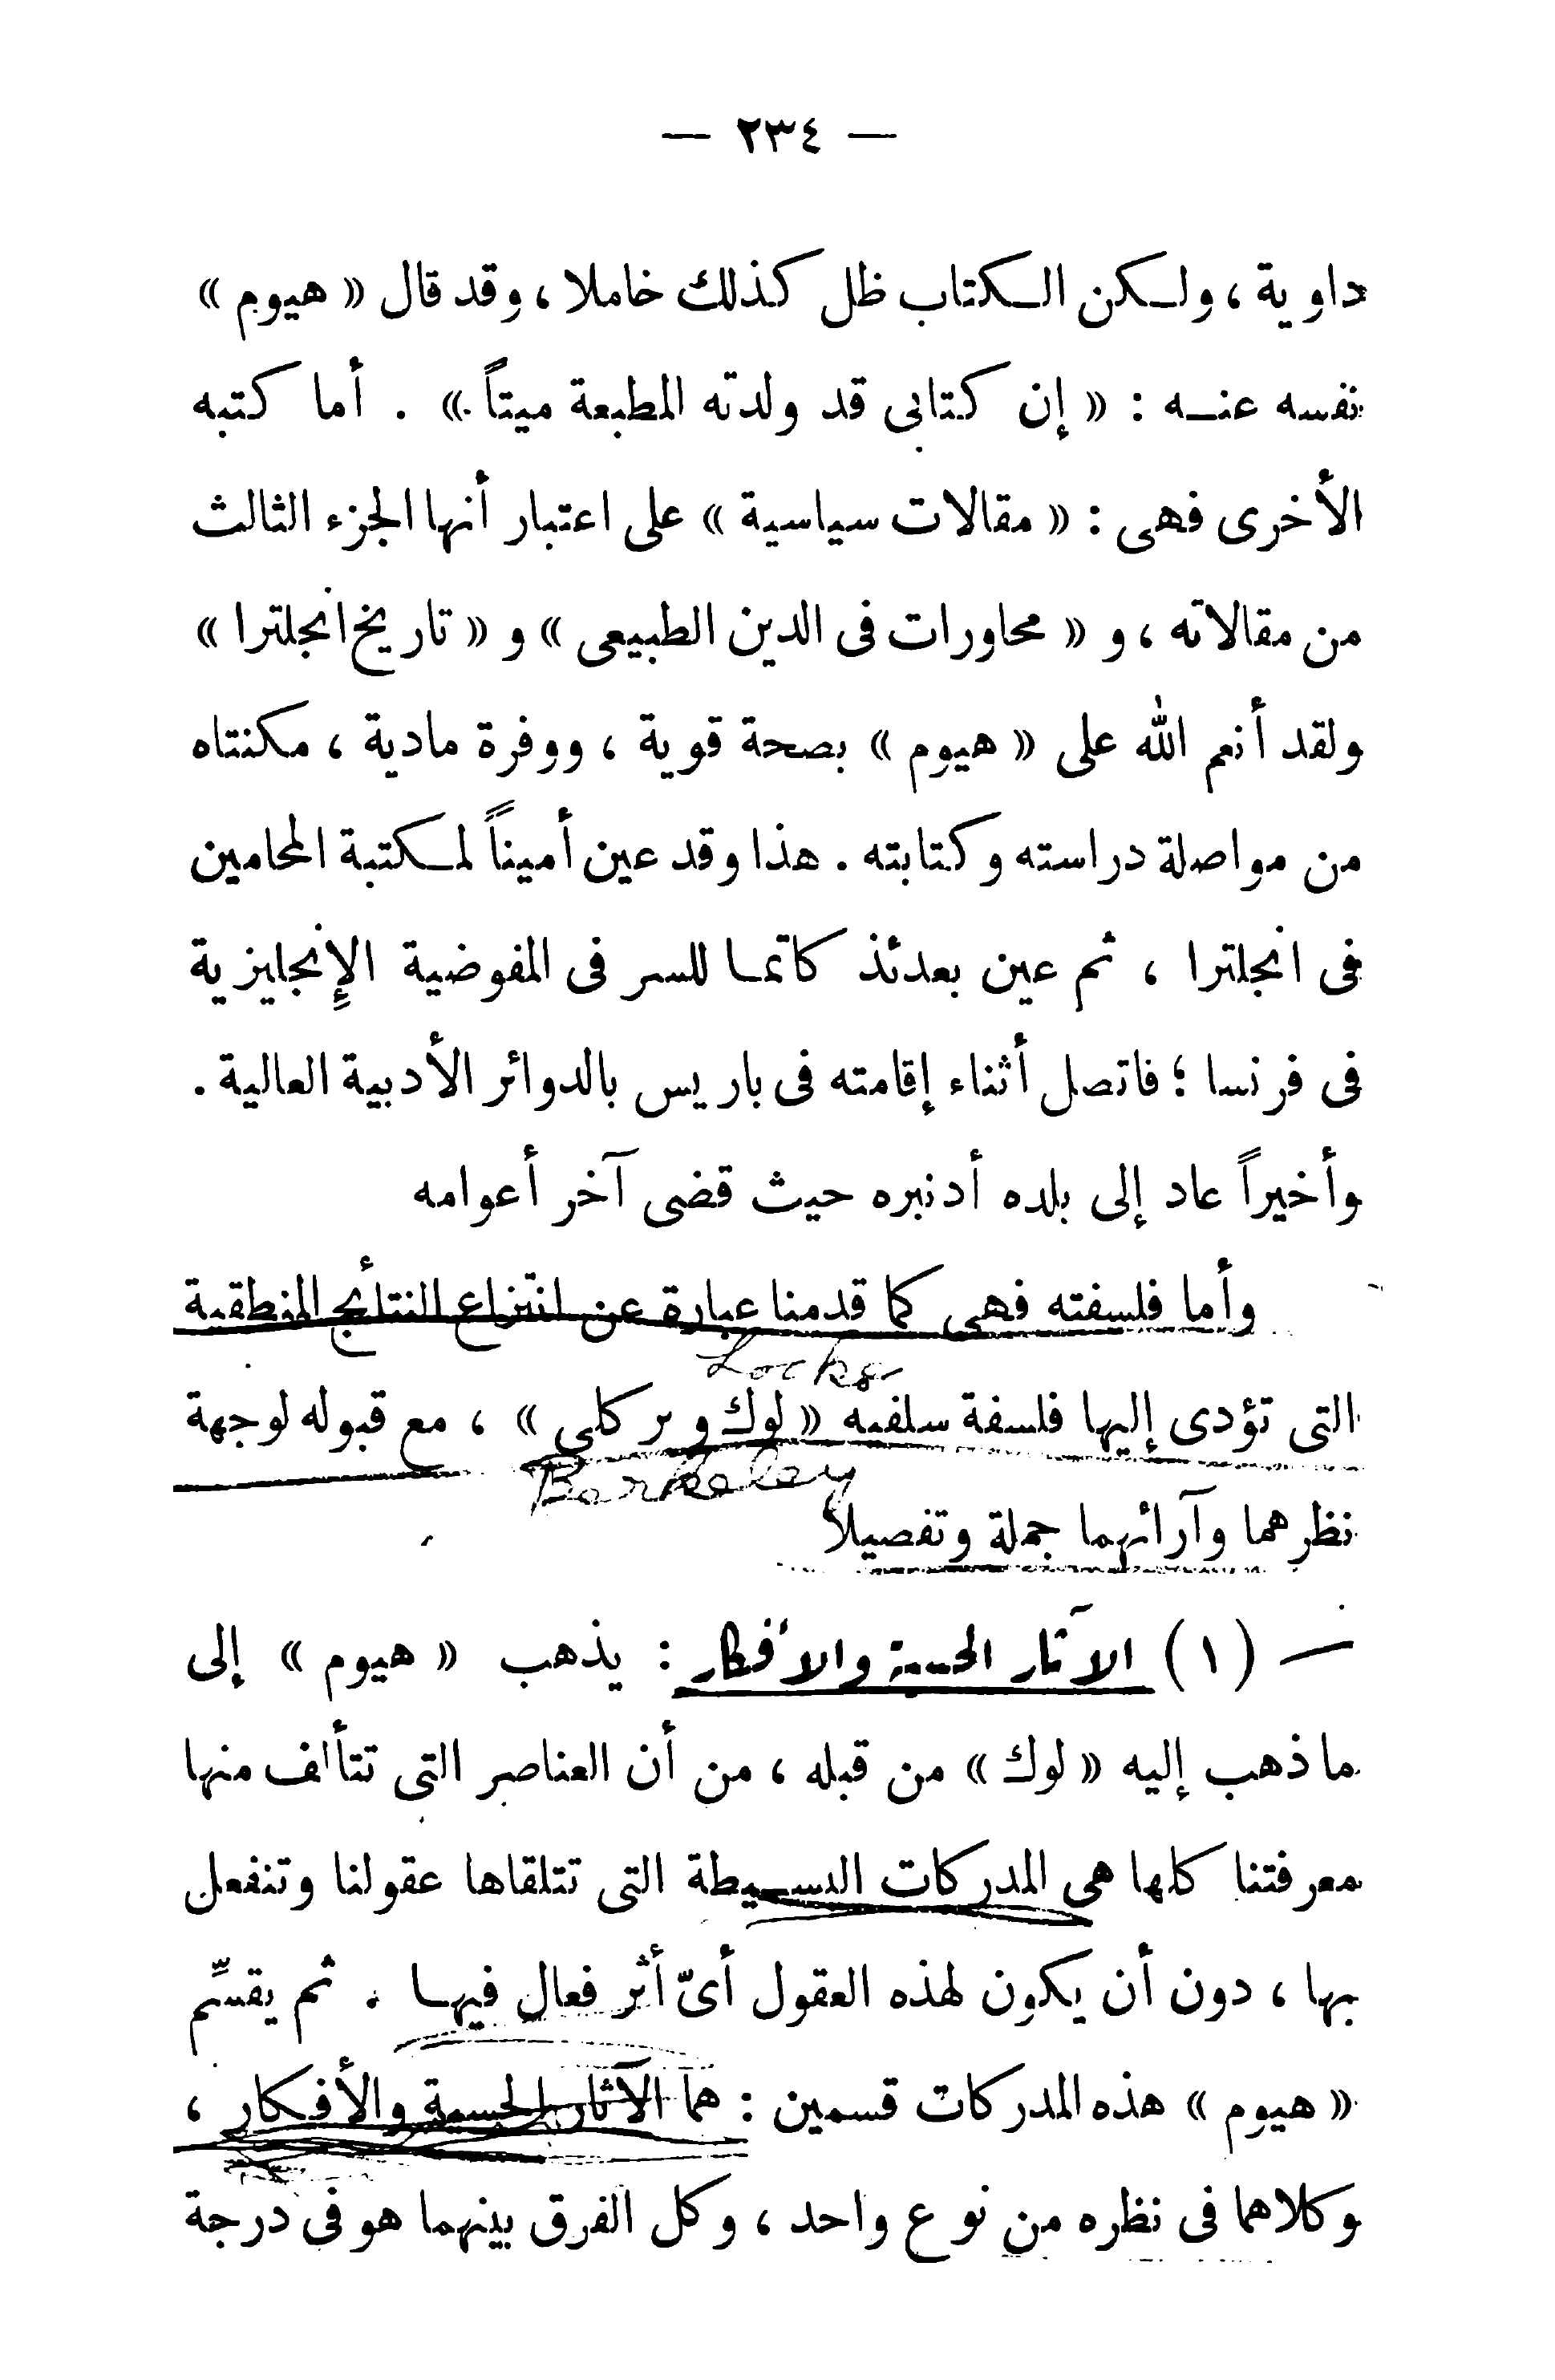 — ٢٣٤ —
داوية ، ولكن الكتاب ظل كذلك خاملا ، وقد قال « هيوم »
نفسه عنه : « إن كتابى قد ولدته المطبعة ميتاً » . أما كتبه
الأخرى فهى : « مقالات سياسية » على اعتبار أنها الجزء الثالث
من مقالاته ، و « محاورات فى الدين الطبيعى » و « تاريخ انجلترا »
ولقد أنعم الله على « هيوم » بصحة قوية ، ووفرة مادية ، مكنتاه
من مواصلة دراسته وكتابته . هذا وقد عين أميناً لمكتبة المحامين
فى انجلترا ، ثم عين بعدئذ كاتما للسر فى المفوضية الإنجليزية
فى فرنسا ؛ فاتصل أثناء إقامته فى باريس بالدوائر الأدبية العالية .
وأخيراً عاد إلى بلده أدنبره حيث قضى آخر أعوامه
وأما فلسفته فهى كما قدمنا عبارة عن انتزاع النتائج المنطقية
Locke
التى تؤدى إليها فلسفة سلفيه « لوك و بركلى » ، مع قبوله لوجهة
Berkeley
نظرهما وآرائهما جملة وتفصيلا
— (١) الآثار الحسية والأفكار : يذهب « هيوم » إلى
ما ذهب إليه « لوك » من قبله ، من أن العناصر التى تتألف منها
معرفتنا كلها هى المدركات البسيطة التى تتلقاها عقولنا وتنفعل
بها ، دون أن يكون لهذه العقول أىّ أثر فعال فيها . ثم يقسِّم
« هيوم » هذه المدركات قسمين : هما الآثار الحسية والأفكار ،
وكلاهما فى نظره من نوع واحد ، وكل الفرق بينهما هو فى درجة